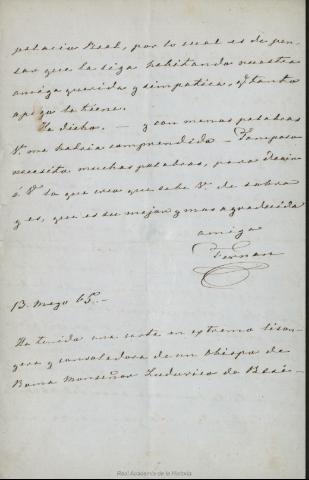 palacio Real, por lo cual es de pen-
sar que la siga habitando nuestra
amiga querida y simpatica, q.e tanto
apego la tiene.
He dicho. — y con menos palabras
V. me habria comprendido — Tampoco
necesito muchas palabras, para decir
á V. lo que creo que sabe V. de sobra
y es, que es su mejor y mas agradecida
amiga
Fernan
13. Mayo 65. —
He tenido una carta en extremo lison-
gera y consoladora de un obispo de
Roma Monseñor Ludovico de
Real Academia de la Historia